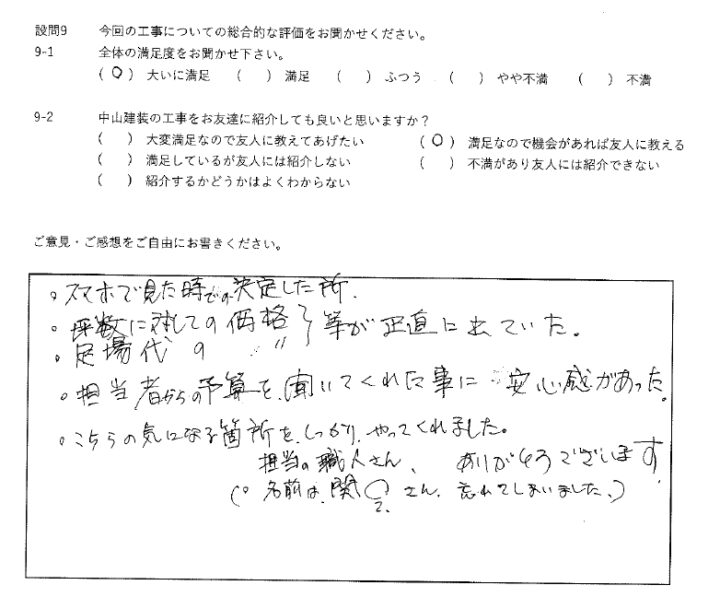 設問9 今回の工事についての総合的な評価をお聞かせください。
9-1 全体の満足度をお聞かせ下さい。
(○) 大いに満足 ( ) 満足 ( ) ふつう ( ) やや不満 ( ) 不満
9-2 中山建装の工事をお友達に紹介しても良いと思いますか?
( ) 大変満足なので友人に教えてあげたい (○) 満足なので機会があれば友人に教える
( ) 満足しているが友人には紹介しない ( ) 不満があり友人には紹介できない
( ) 紹介するかどうかはよくわからない
ご意見・ご感想をご自由にお書きください。
。スマホで見た時での決定した所.
。坪数に対しての価格 } 等が正直に出ていた。
。足場代の 〃
。担当者からの予算を、聞いてくれた事に 安心感があった。
。こちらの気になる箇所を、しっかり、やってくれました。
担当の職人さん、ありがとうございます
(。名前は、関○さん、忘れてしまいました、)
?